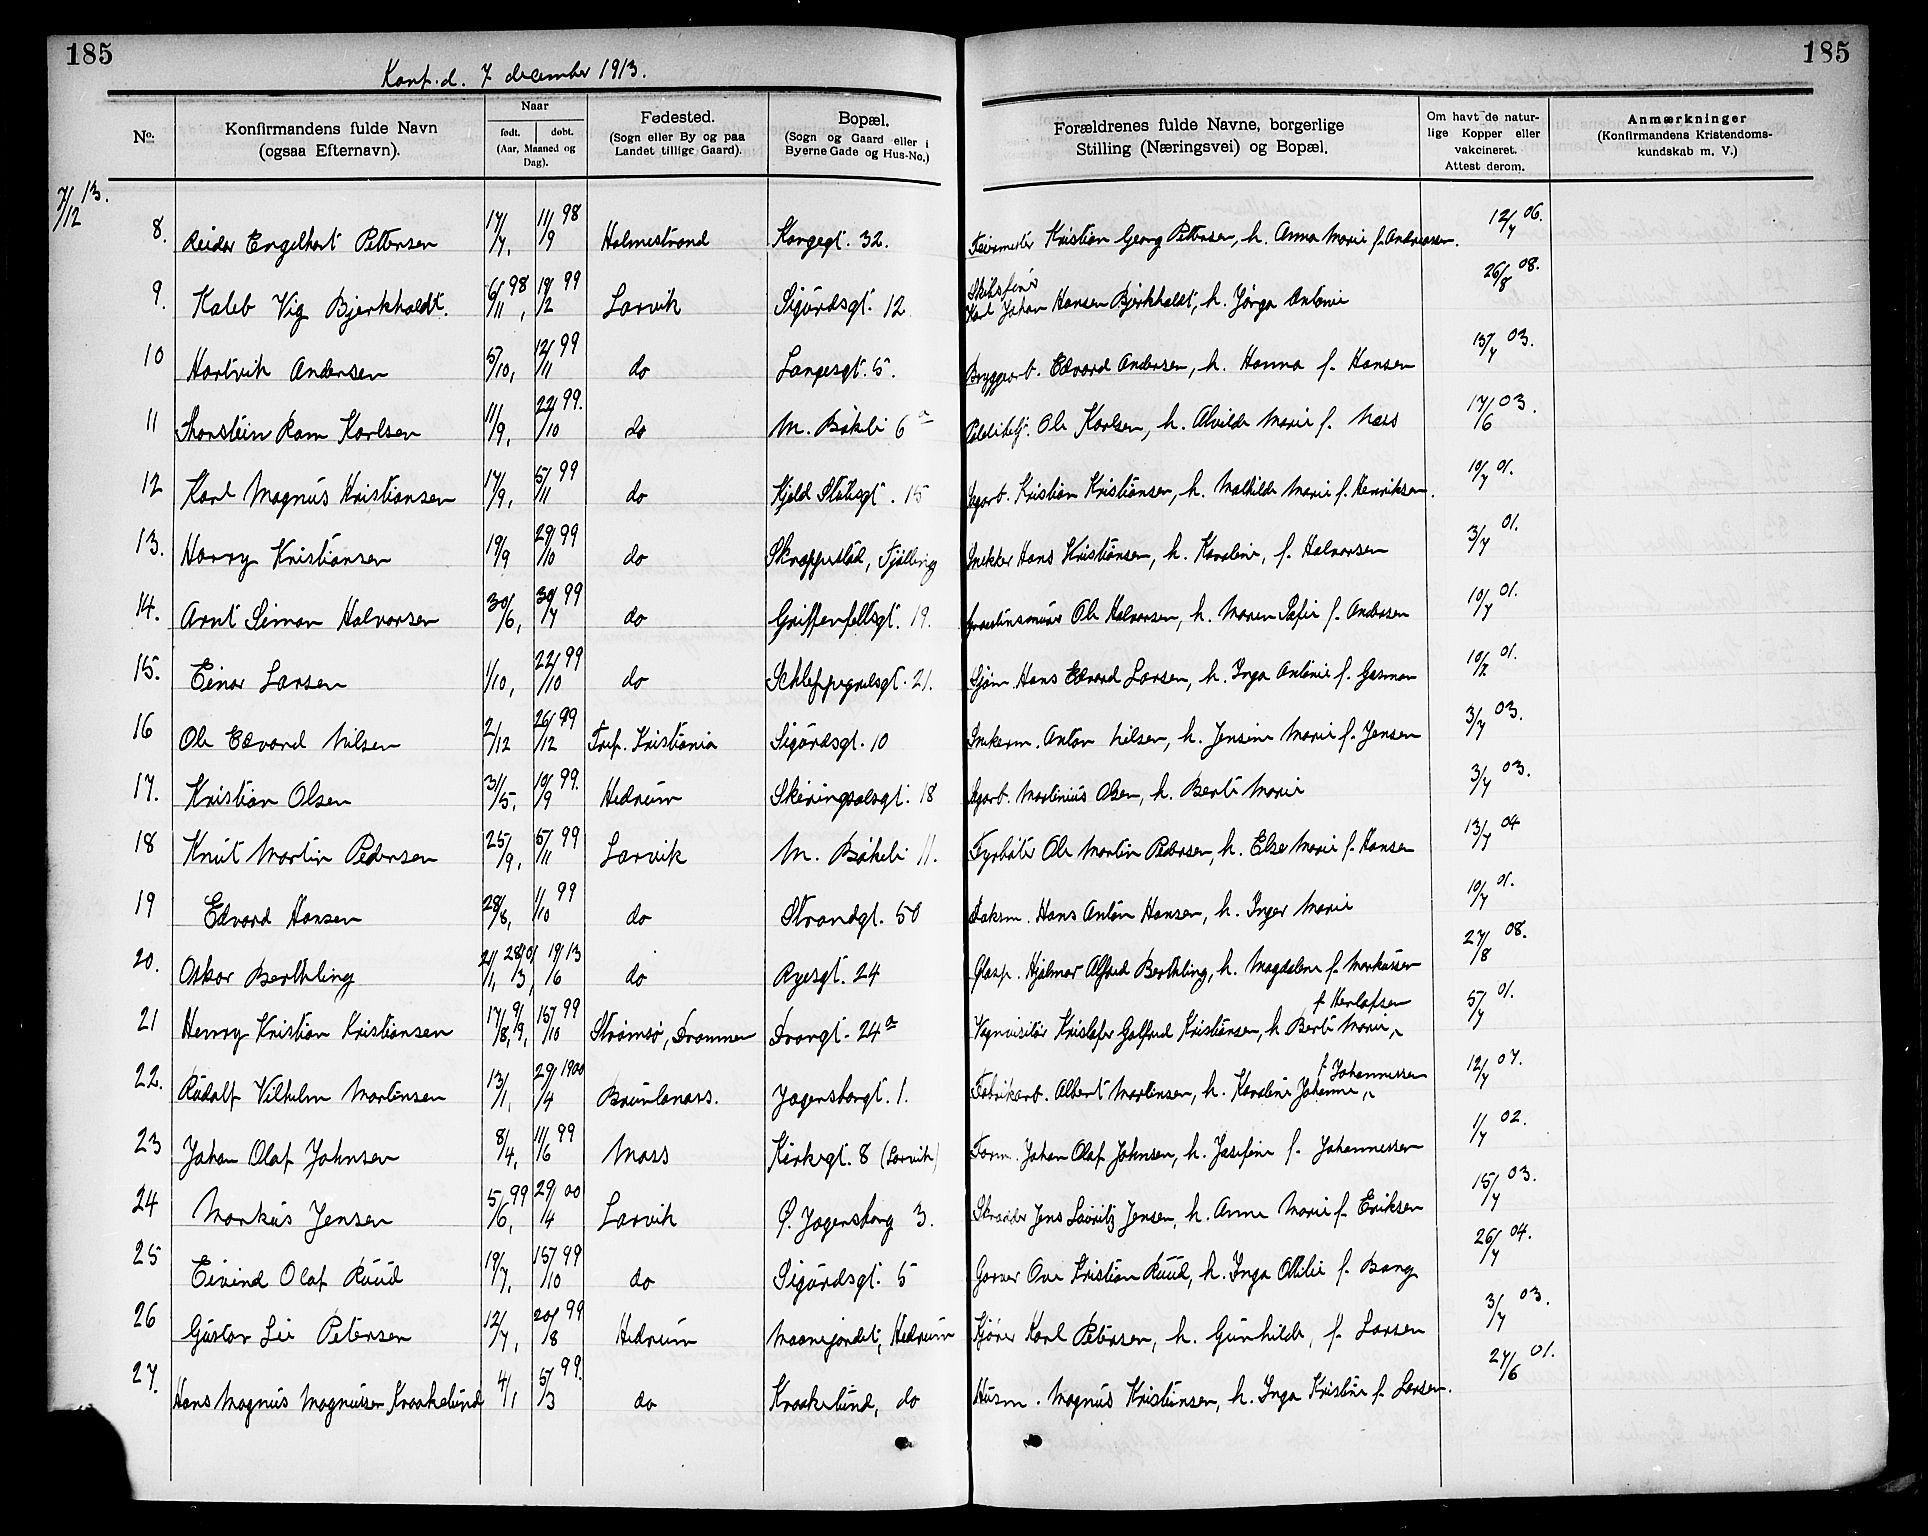 185
185
Konf. d. 7 december 1913.
No.
Konfirmandens fulde Navn (ogsaa Efternavn).
Naar
født. døbt.
(Aar, Maaned og Dag).
Fødested.
(Sogn eller By og paa Landet tillige Gaard).
Bopæl.
(Sogn og Gaard eller i Byerne Gade og Hus-No.)
Forældrenes fulde Navne, borgerlige Stilling (Næringsvei) og Bopæl.
Om havt de naturlige Kopper eller vakcineret. Attest derom.
Anmærkninger
(Konfirmandens Kristendomskundskab m. V.)
7/12 13.
8. Reidar Engelhart Pettersen 17/7, 11/9 98 Holmestrand Kongegt. 32. Feiermester Kristian Georg Pettersen, h. Anna Marie f. Andreasen. 12/7 06.
9. Kaleb Vig Bjerkholdt. 6/11 98, 19/2 99 Larvik Sigurdsgt. 12 Karl Johan Hansen Bjerkholdt, h. Jørga Antonie 26/8 08.
10 Hartvik Andersen 5/10, 12/11 99 do Langesgt. 5. Bryggearb. Edvard Andersen, h. Hanna f. Hansen 13/7 03.
11 Thorstein Ram Karlsen 11/9, 22/10 99. do M. Bøkeli 6a Politibetj. Ole Karlsen, h. Alvilde Marie f. Næss 17/6 03.
12 Karl Magnus Kristiansen 17/9, 5/11 99 do Kjeld Stubsgt. 15 Kristian Kristiansen, h. Mathilde Marie f. Henriksen. 10/7 01.
13. Harry Kristiansen 19/9 29/10 99 do Skreppestad, Tjølling Snekker Hans Kristiansen, h. Karoline, f. Halvorsen 3/7 01.
14. Arnt Simon Halvorsen 30/6, 30/7 99 do Griffenfeltsgt. 19. Ole Halvorsen, h. Maren Sofie f. Andersen 10/7 01.
15. Einar Larsen 1/10, 22/10 99 do Schleppegrelsgt. 21. Sjøm. Hans Edvard Larsen, h. Inga Antonie f. Gasman 10/7 01.
16 Ole Edvard Nilsen 2/12 26/12 99 Tref. Kristiania Sigurdsgt. 10 Snekerm. Anton Nilsen, h. Jensine Marie f. Jensen 3/7 03.
17. Kristian Olsen 31/5, 10/9 99. Hedrum Skiringsalsgt. 18 Martinius Olsen, h. Berte Marie 3/7 03.
18 Knut Martin Pedersen 25/9, 5/11 99 Larvik M. Bøkeli 11. Fyrbøter Ole Martin Pedersen, h. Else Marie f. Hansen 13/7 04
19 Edvard Hansen 28/8, 1/10 99 do Strandgt. 50 Hans Anton Hansen, h. Inger Marie 10/7 01.
20. Oskar Berthling 21/1, 19/6 13 do Ryesgt. 24 Glasp. Hjalmar Alfred Berthling, h. Magdalene f. Markussen 27/8 08.
21 Henry Kristian Kristiansen 17/8, 15/10 99 Strømsø, Drammen Dronngt. 24a Vognvisitør Kristofer Gotfred Kristiansen, h. Berte Marie f. Herlofsen 5/7 01.
22. Rudolf Vilhelm Martinsen 13/1, 29/4 1900 Brunlanæs. Jegersborgt. 1. Fabrikarb. Albert Martinsen, h. Karoline Johanne f. Johannessen 12/7 07.
23 Johan Olaf Johnsen 8/4, 11/6 99 Moss Kirkegt. 8 (Larvik) Form. Johan Olaf Johnsen, h. Josefine f. Johannessen 1/7 02.
24 Markus Jensen 5/6, 99 29/4 00 Larvik Ø. Jegersborg 3. Skrædder Jens Lauritz Jensen, h. Anne Marie f. Eriksen 15/7 03.
25 Eivind Olaf Ruud 19/7, 15/10 99 do Sigurdsgt. 5 Garver Ove Kristian Ruud, h. Inga Otilie f. Bang 26/7 04.
26 Gustav Lie Petersen 12/7, 20/8 99 Hedrum Maanejordet, Hedrum Kjører Karl Petersen, h. Gunhilde, f. Larsen 3/7 03.
27. Hans Magnus Magnussen Kraakelund 4/1, 5/3 99. do Kraakelund, do Husm. Magnus Kristiansen, h. Inga Kristine f. Larsen. 27/6 01.